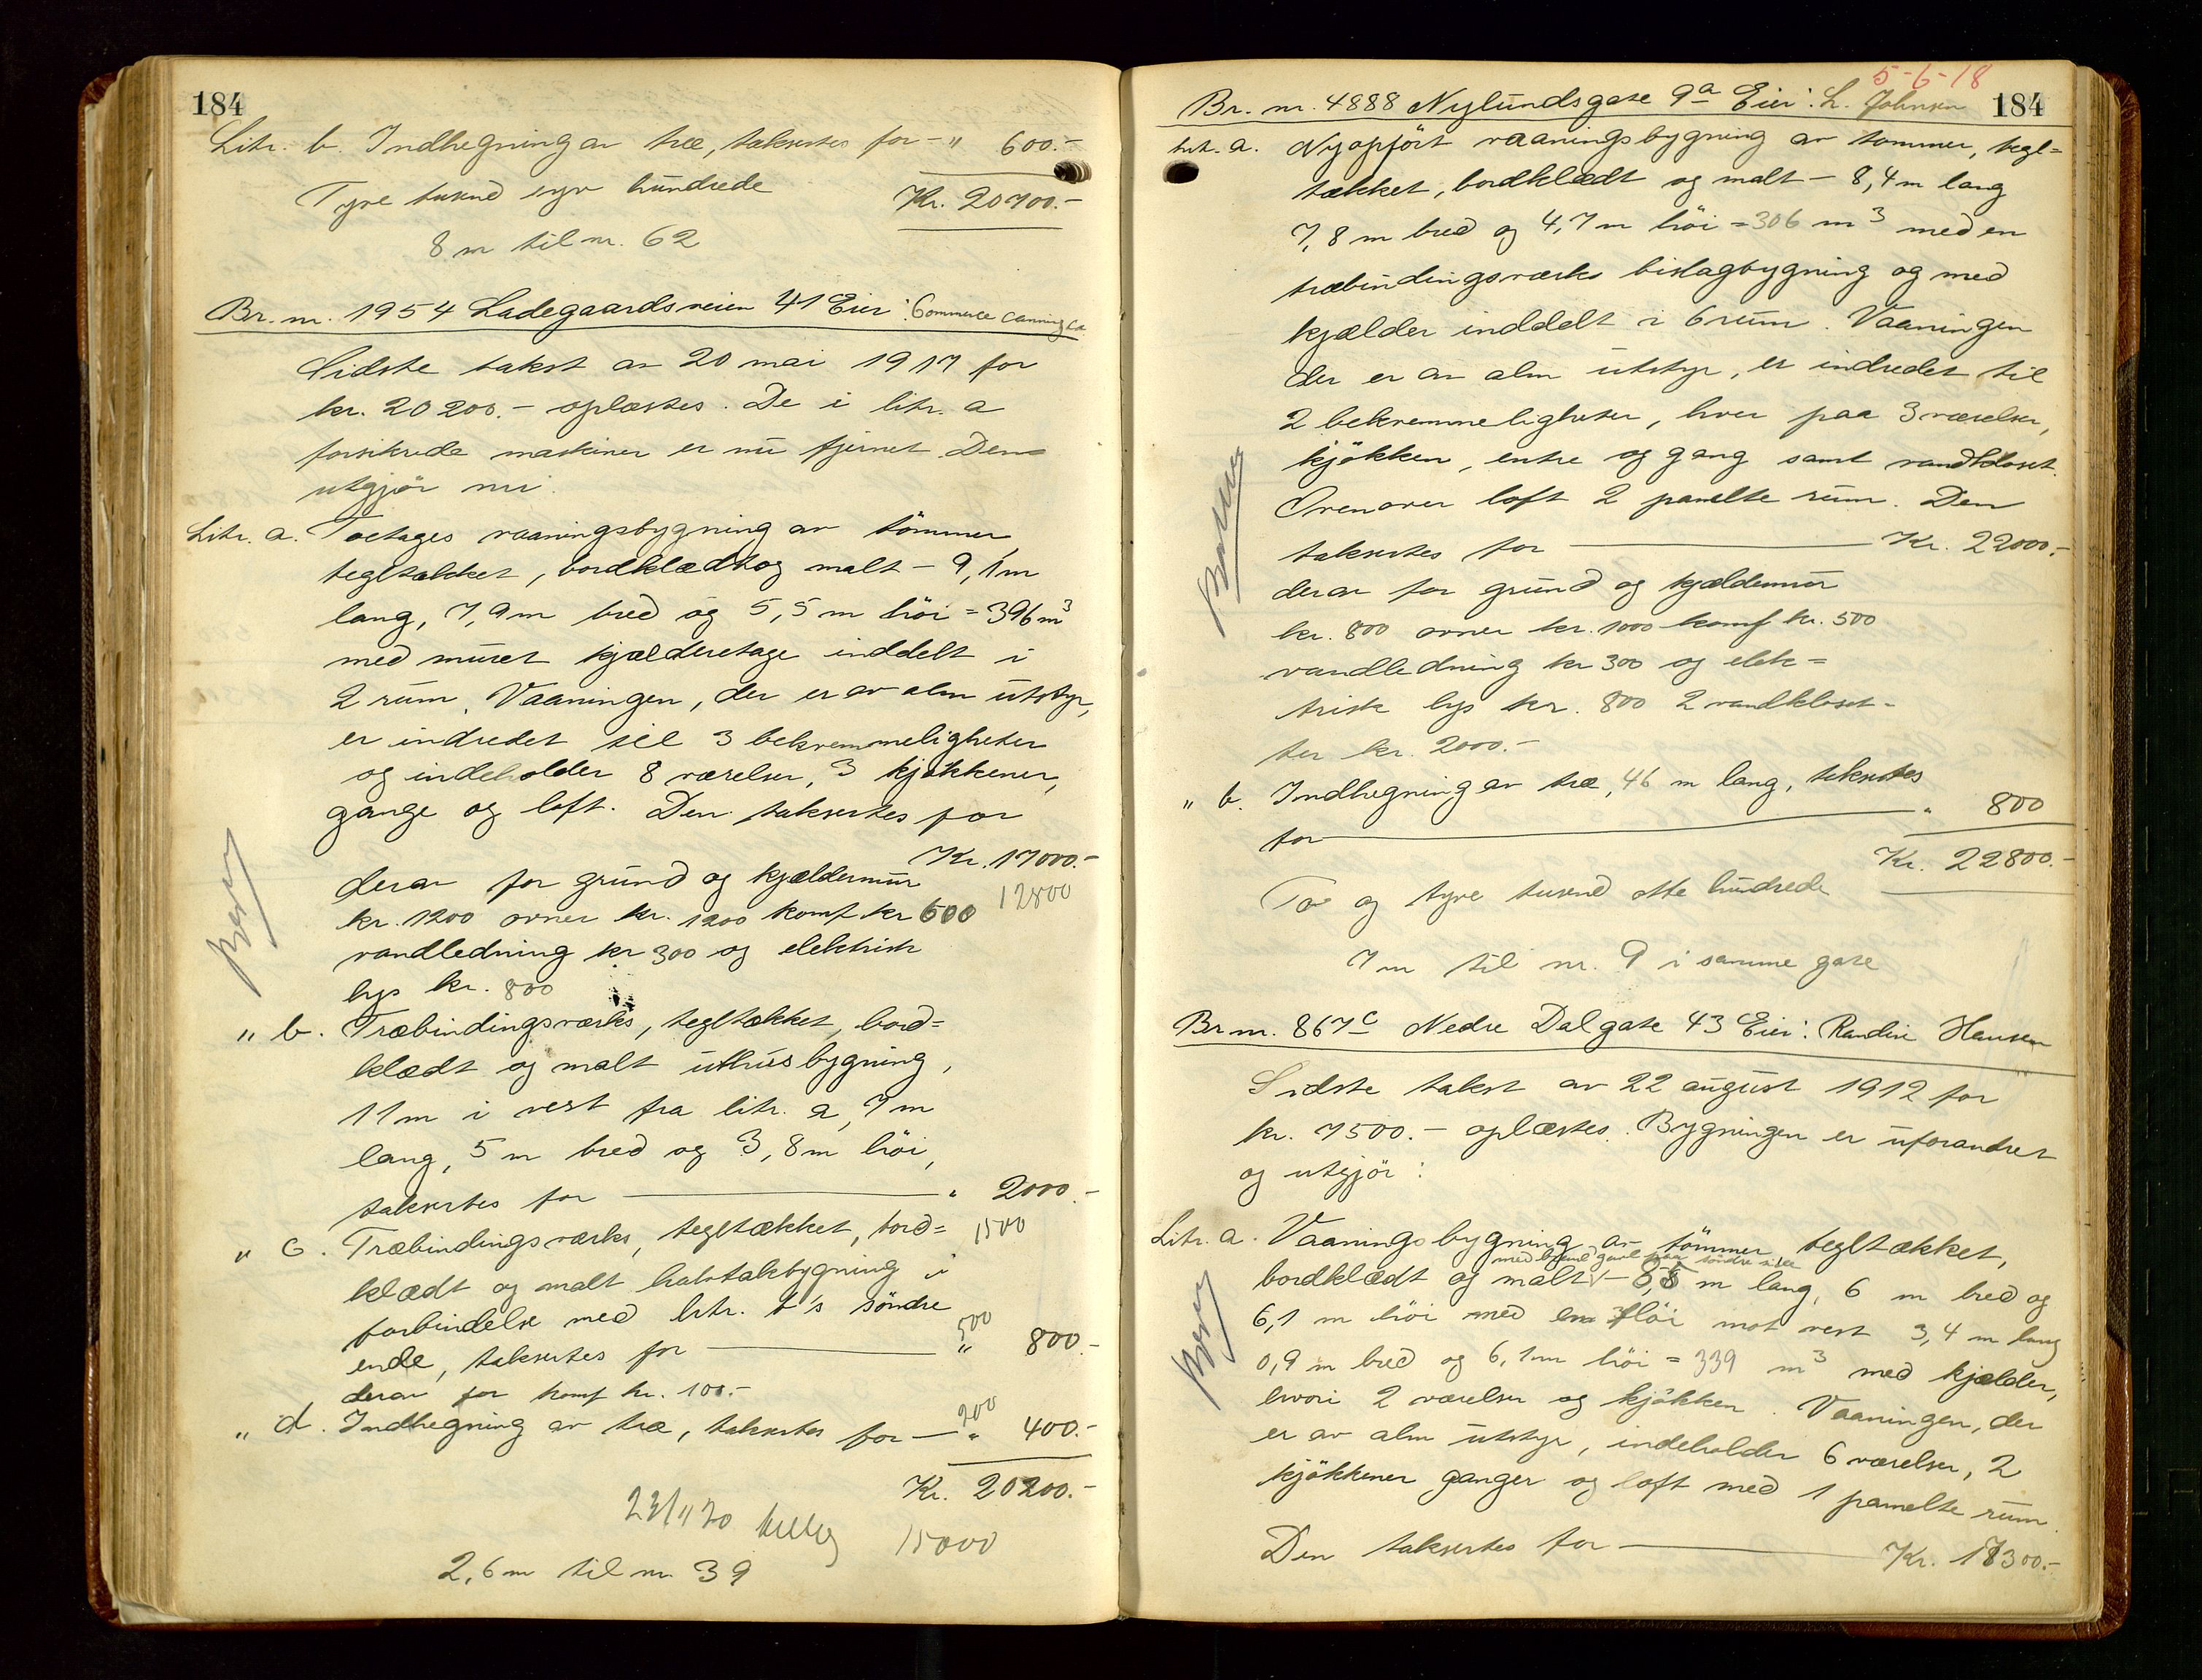 184
Litr. b. Indhegning av træ, taksertes for - " 600.-
Kr. 20700.-
Tyve tusend syv hundrede
8 m til nr. 62
Br. nr. 1954 Ladegaardsveien 41 Eier: Commerce Canning Co
Sidste takst av 20 mai 1917 for
kr. 20200.- oplæstes. De i litr. a
forsikrede maskiner er nu fjernet. Den
utgjör nu:
Litr. a. Toetages vaaningsbygning av tömmer,
tegltækket, bordklædt og malt - 9,1 m
lang, 7,9 m bred og 5,5 m höi = 396 m3
med muret kjælderetage inddelt i
2 rum. Vaaningen, der er av alm utstyr,
er indredet til 3 bekvemmeligheter
og indeholder 8 værelser, 3 kjøkkener,
gange og loft. Den taksertes for
Kr. 17000.-
derav for grund og kjældermur 12800
kr. 1200 ovner kr. 1200 komf kr 600
vandledning kr 300 og elektrisk
lys kr. 800
" b. Træbindingsverks, tegltækket, bord=
klædt og malt uthusbygning,
11 m i vest fra litr. a, 7 m
lang, 5 m bred og 3,8 m höi,
taksertes for " 2000.-
1500
" c. Træbindingsverks, tegltækket, bord=
klædt og malt halvtakbygning i
forbindelse med litr. b's söndre
500
ende, taksertes for " 800.-
derav for komf kr. 100.-
200
" d. Indhegning av træ, taksertes for - " 400.-
Kr. 20200.-
23/11 20 15000
2,6 m til nr. 39
5-6-18
Br. nr. 4888 Nylundsgate 9a Eier: L. Johnsen 184
Litr. a. Nyopfört vaaningsbygning av tømmer, tegl=
tækket, bordklædt og malt - 8,4 m lang
7,8 m bred og 4,7 m höi = 306 m3 med en
træbindingsverks bislagbygning og med
kjælder inddelt i 6 rum. Vaaningen
der er av alm utstyr, er indredet til
2 bekvemmeligheter, hver paa 3 værelser,
kjökken, entre og gang samt vandkloset.
Ovenover loft 2 panelte rum. Den
taksertes for Kr. 22000.-
derav for grund og kjældermur
kr. 800 ovner kr. 1000 komf kr. 500
vandledning kr 300 og elek=
trisk lys kr. 800 2 vandkloset-
ter kr. 2000.-
" b. Indhegning av træ, 46 m lang, taksertes
for " 800
Kr. 22800.-
To og tyve tusend otte hundrede
7 m til nr. 9 i samme gate
Br nr. 867c Nedre Dalgate 43 Eier: Randine Hansen
Sidste takst av 22 august 1912 for
kr. 7500.- oplæstes. Bygningen er uforandret
og utgjör:
Litr. a. Vaaningsbygning av tömmer, tegltækket,
med gavl paa söndre side
bordklædt og malt - 8,8 m lang, 6 m bred og
6,1 m höi med en flöi mot vest 3,4 m lang
0,9 m bred og 6,1 m höi = 339 m3 med kjælder,
hvori 2 værelser og kjökken. Vaaningen, der
er av alm utstyr, indeholder 6 værelser, 2
kjökkener ganger og loft med 1 panelte rum.
Den taksertes for Kr. 18300.-